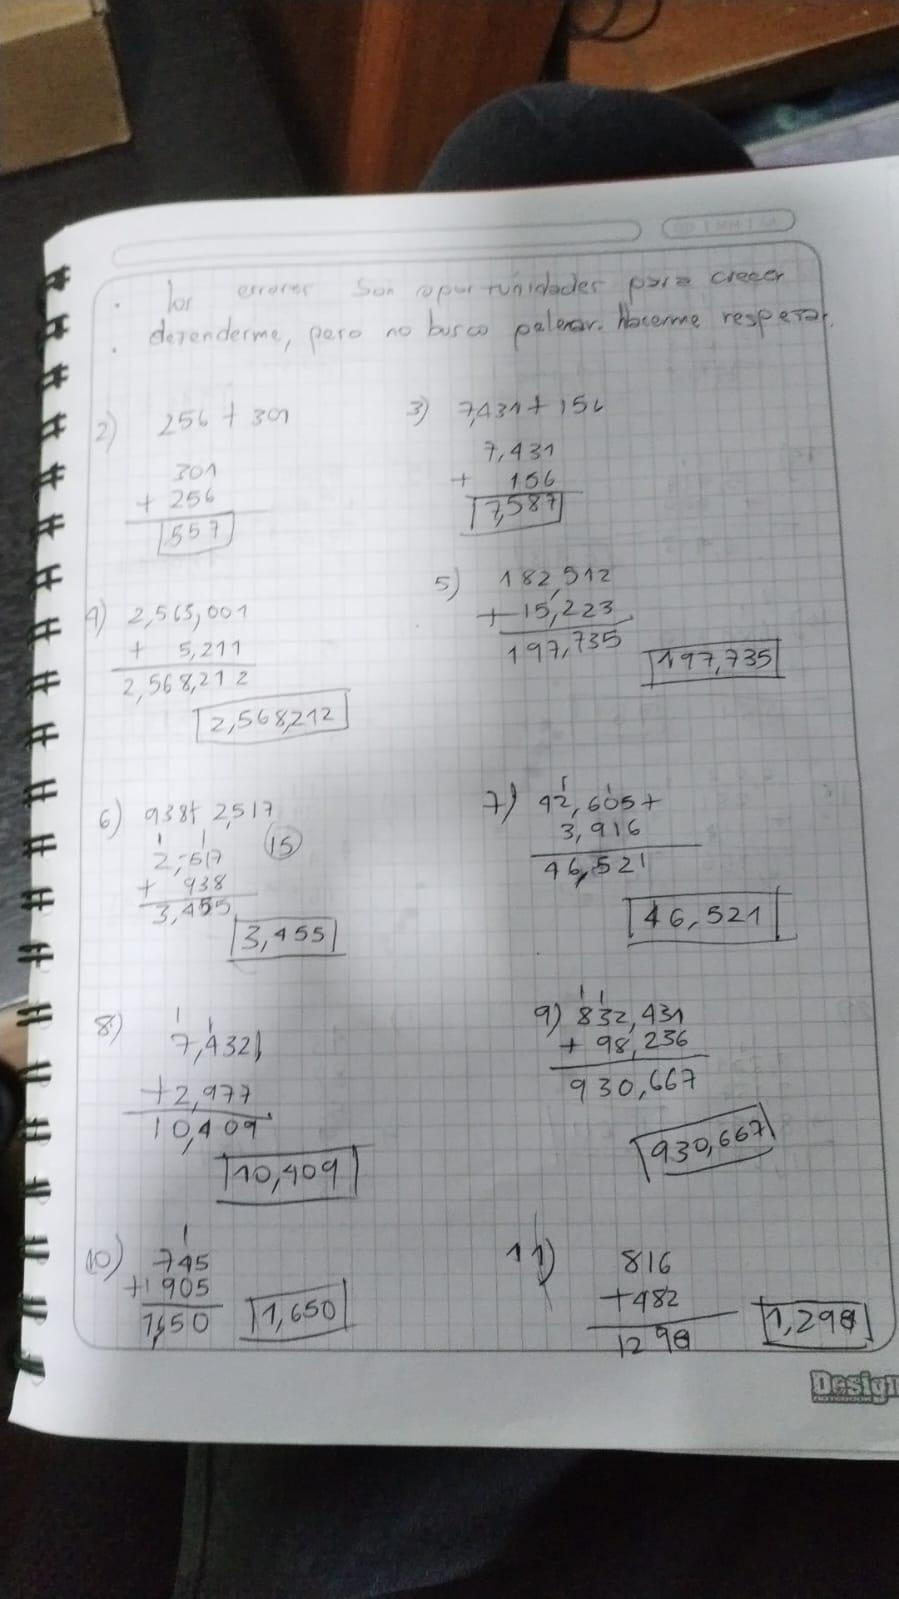 · los errores son oportunidades para crecer
· defenderme, pero no busco pelear. Hacerme respetar.
2) 256 + 301
301
+ 256
557
3) 7,431 + 156
7,431
+ 156
7,587
4) 2,563,001
+ 5,211
2,568,212
2,568,212
5) 182,512
+ 15,223
197,735
197,735
6) 938 + 2,517
1 1
2,517
15
+ 938
3,455
3,455
7) 1 1
42,605 +
3,916
46,521
46,521
8) 1 1
7,432
+ 2,977
10,409
10,409
9) 1 1
832,431
+ 98,236
930,667
930,667
10) 1
745
+ 905
1,650
1,650
11) 816
+ 482
1298
1,298